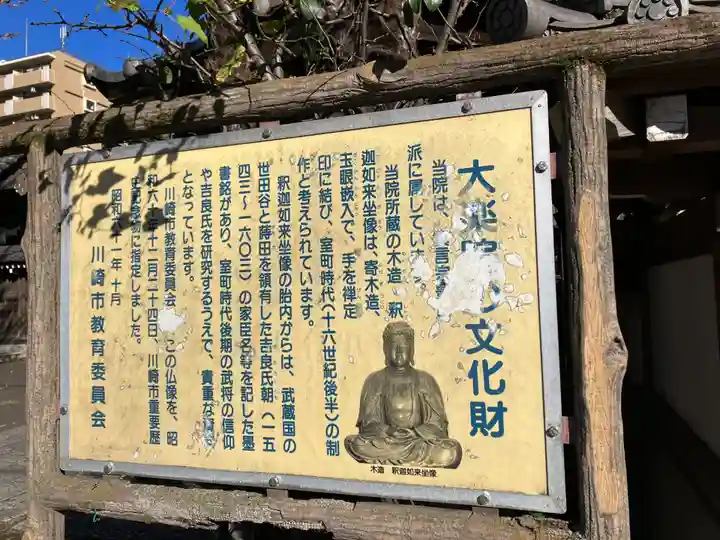 大楽院の文化財
当院は、真言宗
派に属してい
当院所蔵の木造 釈
迦如来坐像は、寄木造、
玉眼嵌入で、手を禅定
印に結び、室町時代(十六世紀後半)の制
作と考えられています。
釈迦如来坐像の胎内からは、武蔵国の
世田谷と蒔田を領有した吉良氏朝(一五
四三～一六〇三)の家臣名等を記した墨
書銘があり、室町時代後期の武将の信仰
や吉良氏を研究するうえで、貴重な
となっています。
川崎市教育委員会 この仏像を、昭
和六十年十二月二十四日、川崎市重要歴
史記念物に指定しました。
昭和六十一年十月
川崎市教育委員会
木造 釈迦如来坐像